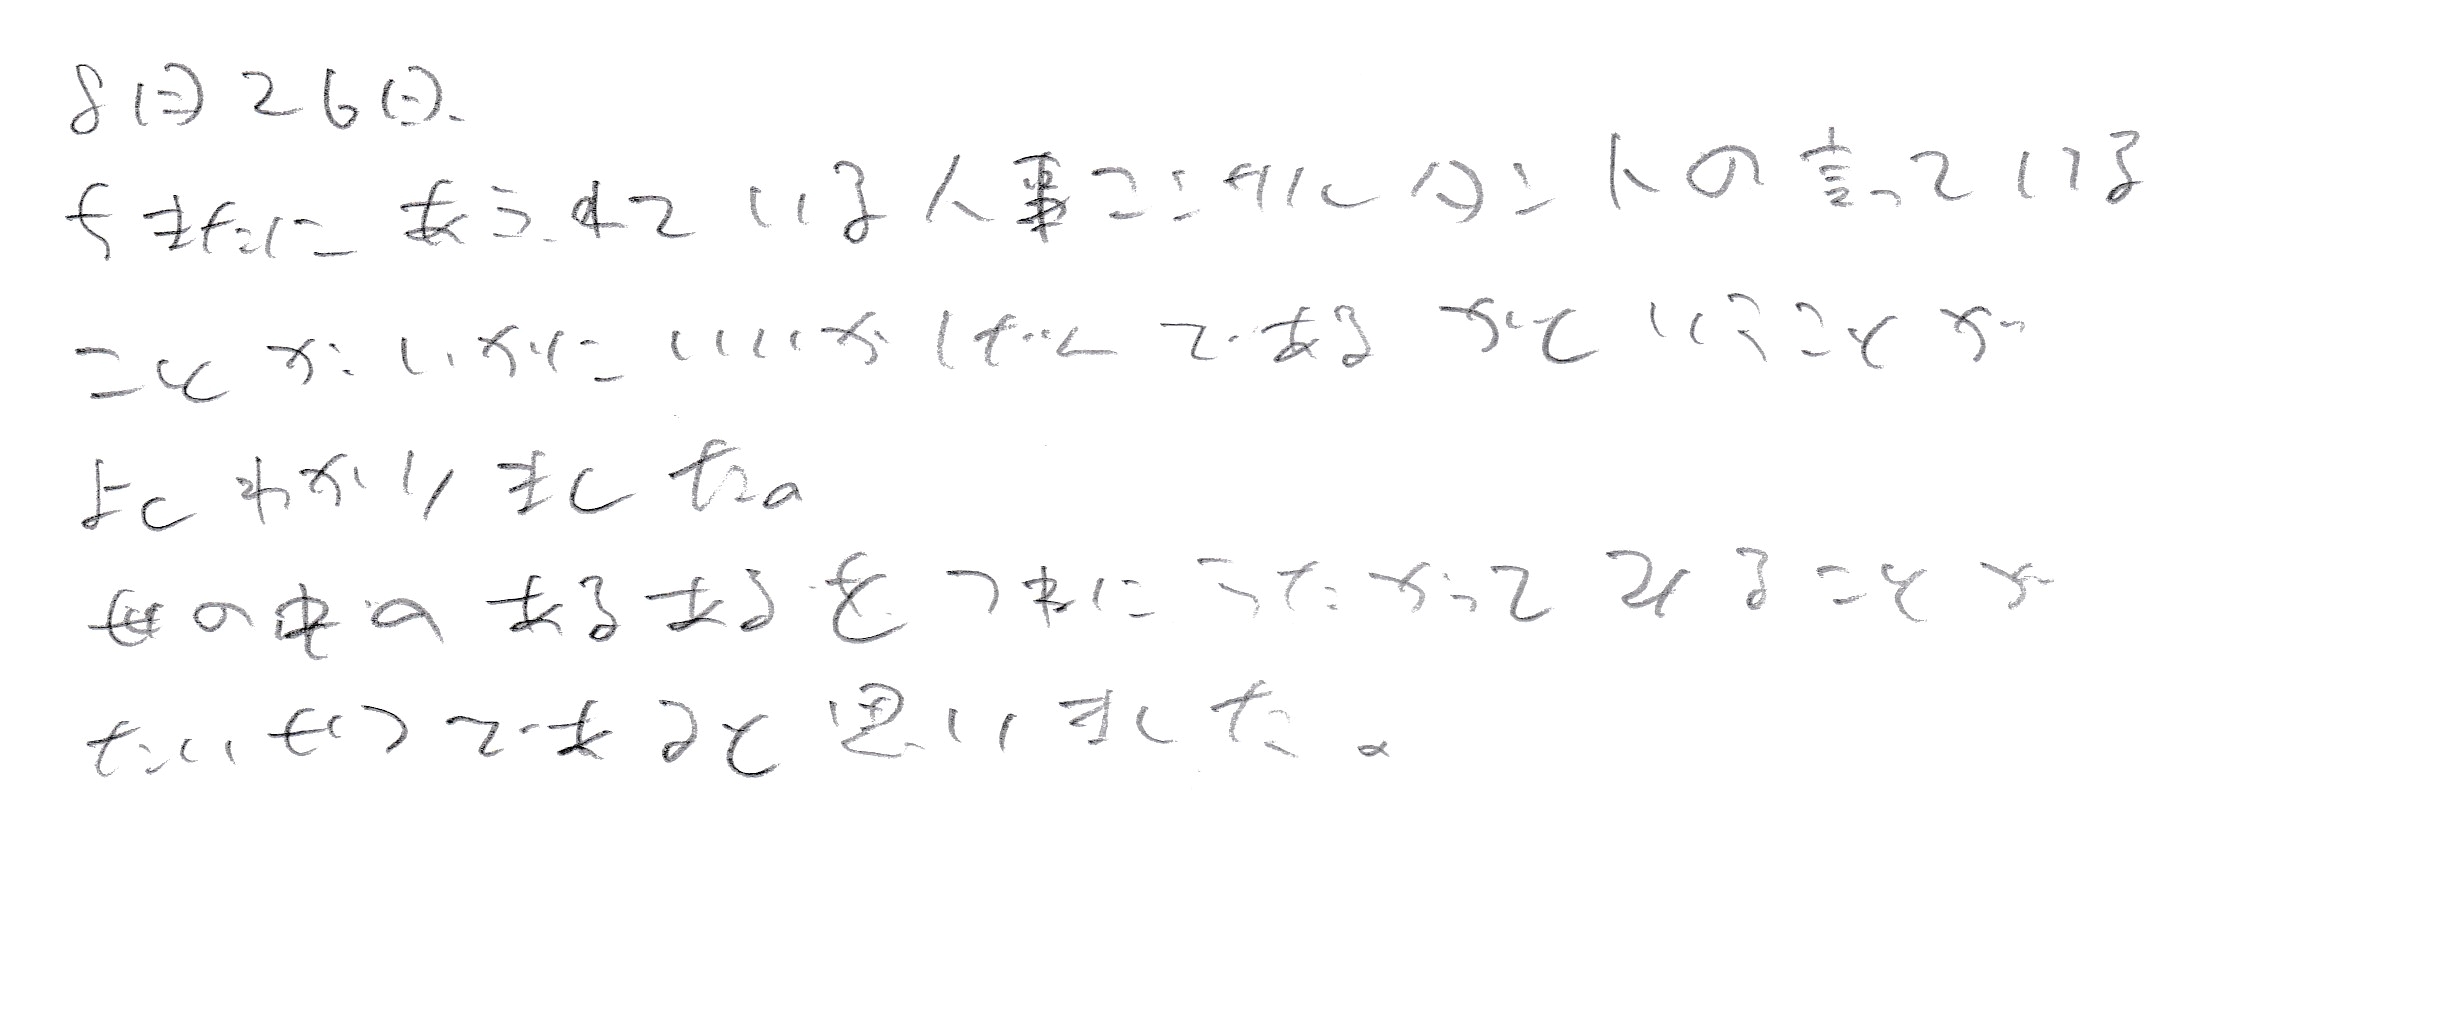 8月26日、
ちまたにあふれている人事コンサルタントの言っている
ことがいかにいいかげんであるかということが
よくわかりました。
世の中のあるあるをつねにうたがってみることが
たいせつであると思いました。